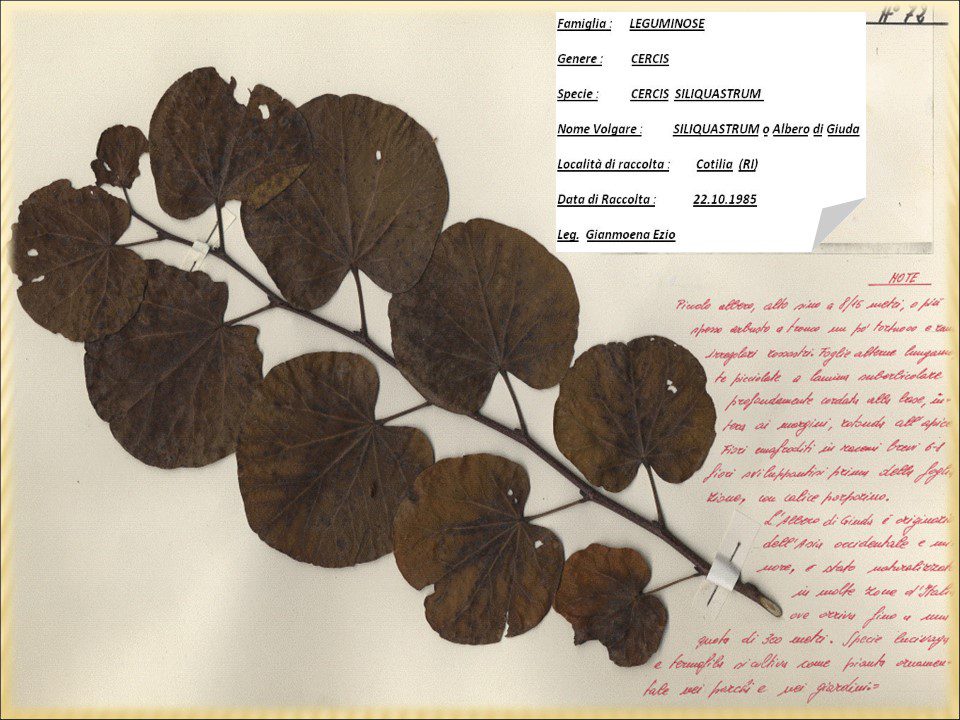 N° 72
Famiglia : LEGUMINOSE
Genere : CERCIS
Specie : CERCIS SILIQUASTRUM
Nome Volgare : SILIQUASTRUM o Albero di Giuda
Località di raccolta : Cotilia (RI)
Data di Raccolta : 22.10.1985
Leg. Gianmoena Ezio
NOTE
Piccolo albero, alto sino a 8/15 metri, o più
spesso arbusto a tronco un po' tortuoso e
irregolari rossastri. Foglie alterne
te picciolate a lamina suborbicolare
profondamente cordata alla base, in-
tera ai margini, rotonda all'apice
Fiori ermafroditi in racemi brevi
fiori sviluppantisi prima della
zione, con calice porporino.
L'Albero di Giuda è
dell'Asia occidentale e mi-
nore, e stato
in molte zone d'
ove arriva fino a una
quota di 300 metri. Specie
e termofila si coltiva come pianta ornamen-
tale nei parchi e nei giardini=